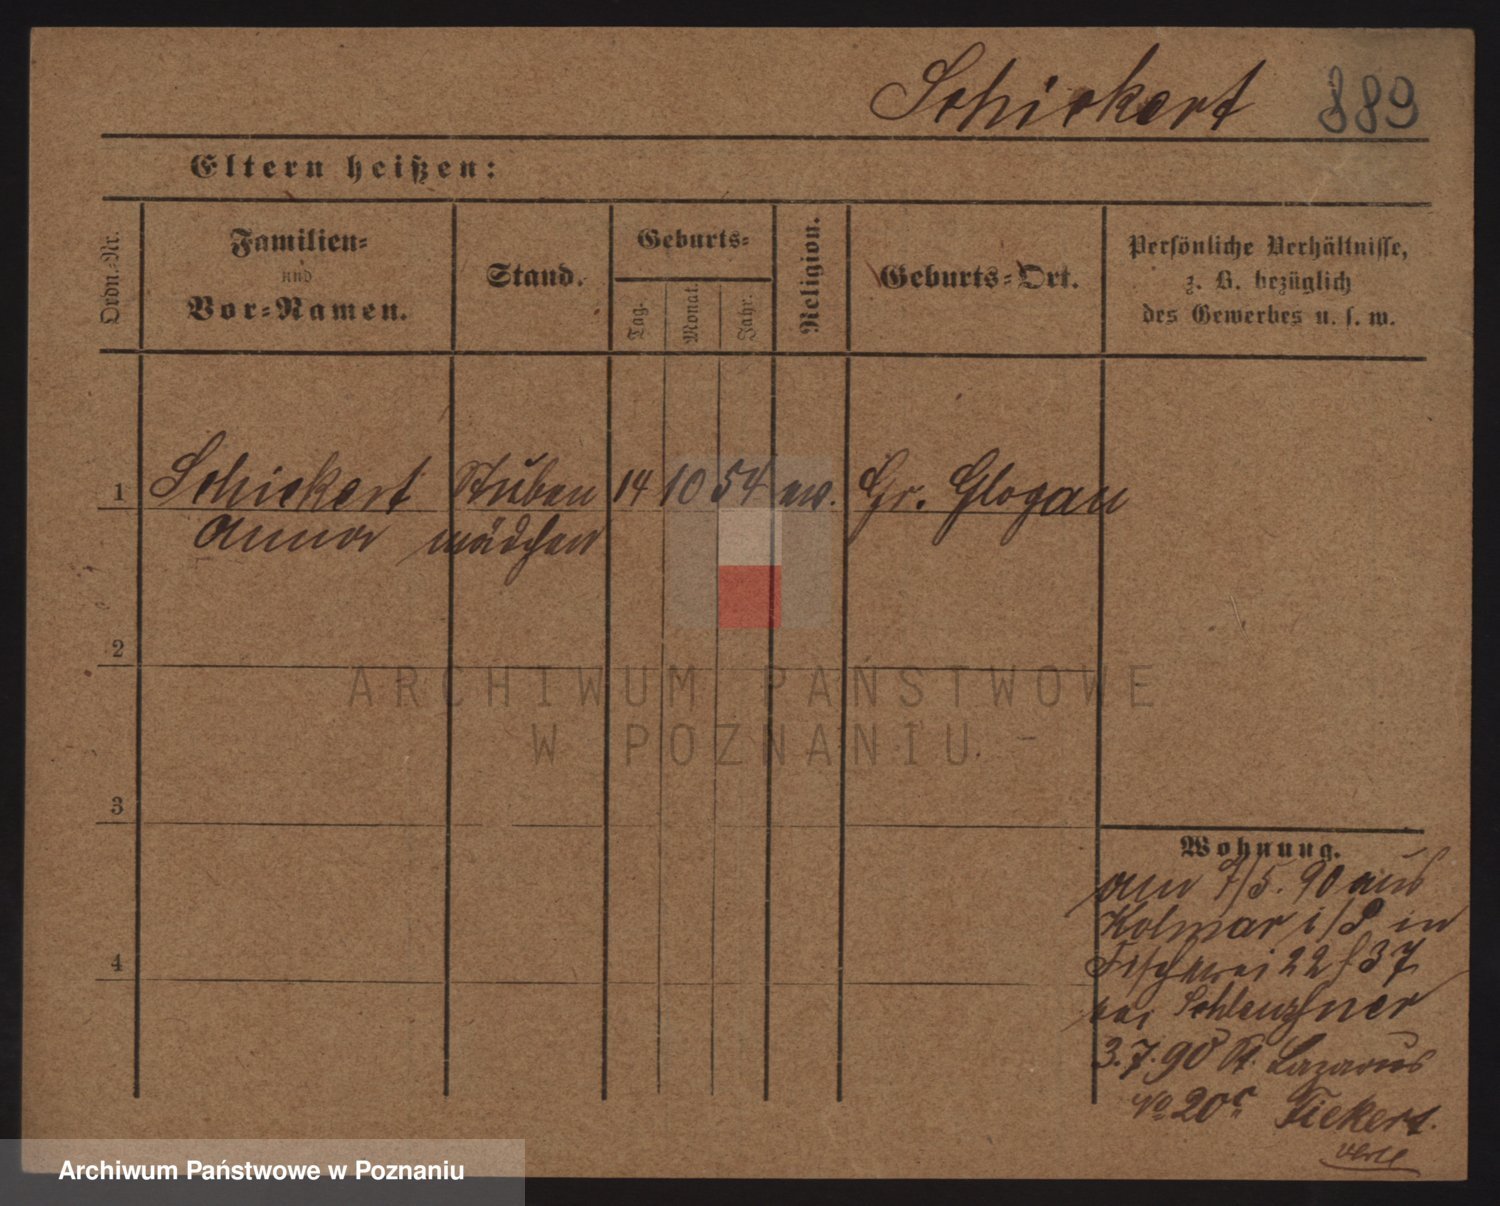 Schickert 889
Eltern heißen:
Ordn.-Nr.
Familien-
und
Vor-Namen.
Stand.
Geburts-
Tag.
Monat.
Jahr.
Religion.
Geburts-Ort.
Persönliche Verhältnisse,
z. B. bezüglich
des Gewerbes u. s. w.
1 Schickert Stuben 14 10 54 ev. Gr. Glogau
Anna mädchen
2
3
4
Wohnung.
am 7/5. 90 aus
Kolmar i/P in
Fischerei 22 f 37
bei
3.7.90 St. Lazarus
No 20c Fickert.
ARCHIWUM PAŃSTWOWE
W POZNANIU
Archiwum Państwowe w Poznaniu